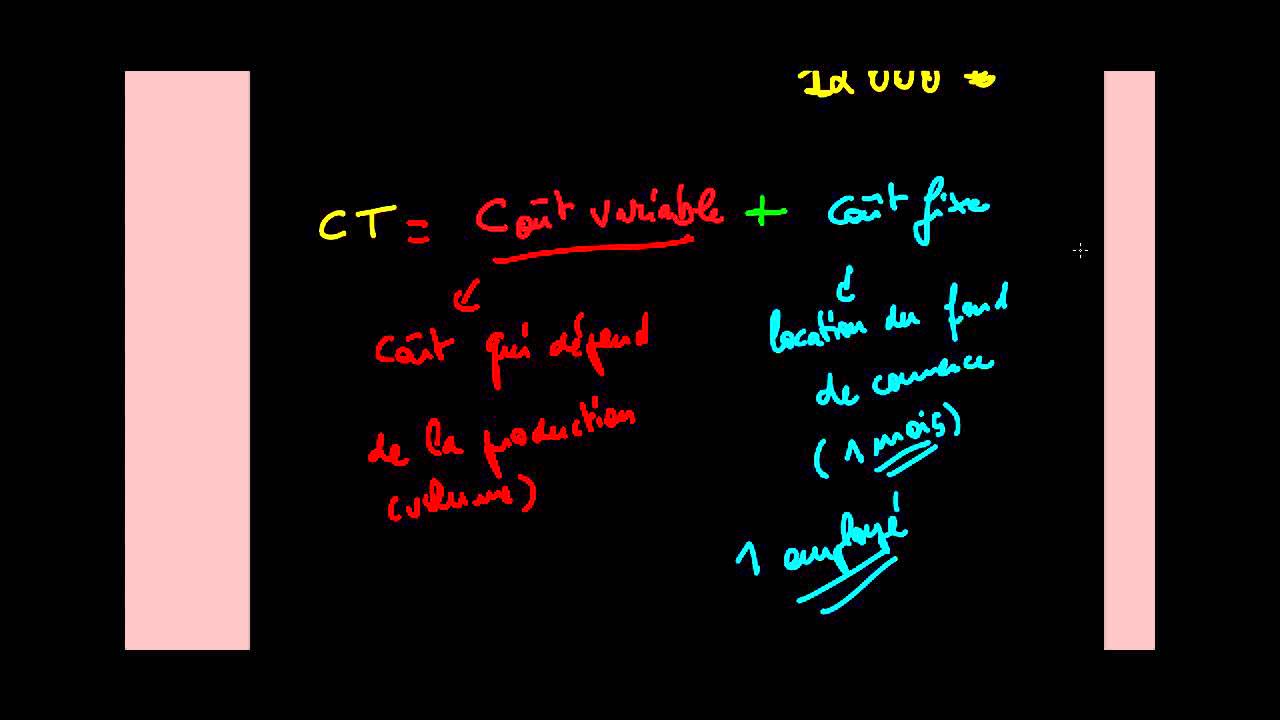 12 000
CT = Coût variable + Coût fixe
Coût qui dépend
de la production
(volume)
location du fond
de commerce
(1 mois)
1 employé